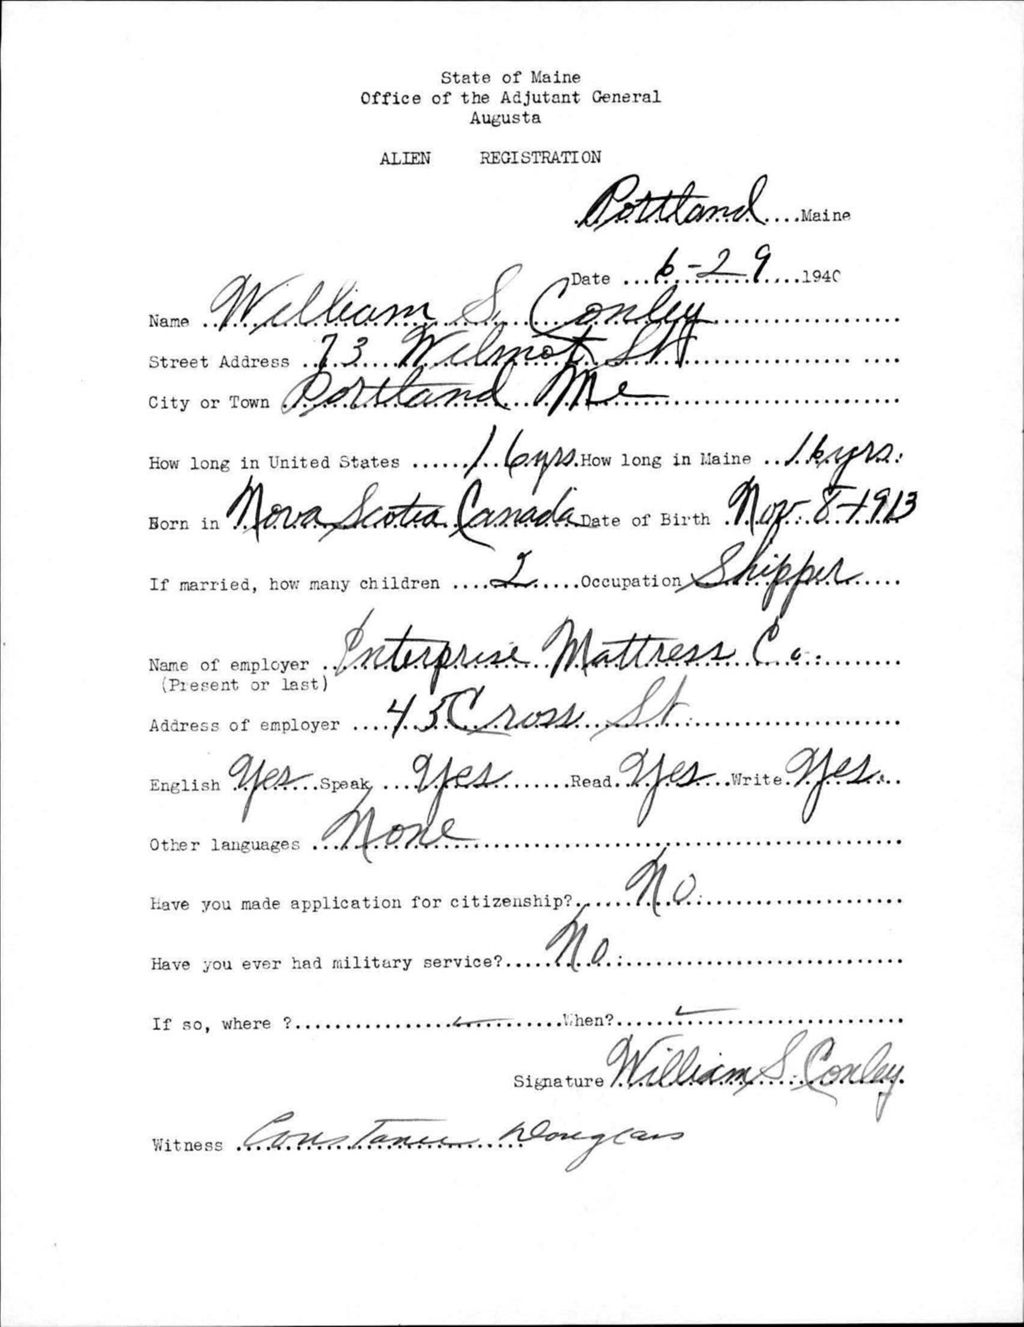 State of Maine
Office of the Adjutant General
Augusta
ALIEN REGISTRATION
Portland....Maine
Date ...6-29....1940
Name ..William S. Conley......................
Street Address ..73 Wilmot St.......................
City or Town Portland Me......................
How long in United States ......16yrs.How long in Maine ..16yrs.
Born in Nova Scotia Canada Date of Birth .Nov. 8-1913
If married, how many children ....2.....Occupation Shipper.....
Name of employer ..Enterprise Mattress Co..........
(Present or last)
Address of employer ....43 Cross St......................
English Yes...Speak ...Yes.......Read..Yes..Write.Yes...
Other languages ..None..................................................
Have you made application for citizenship?......No......................
Have you ever had military service?.....No..................................
If so, where ?...........................When?..............................
Signature William S. Conley.
Witness .Constance Douglass